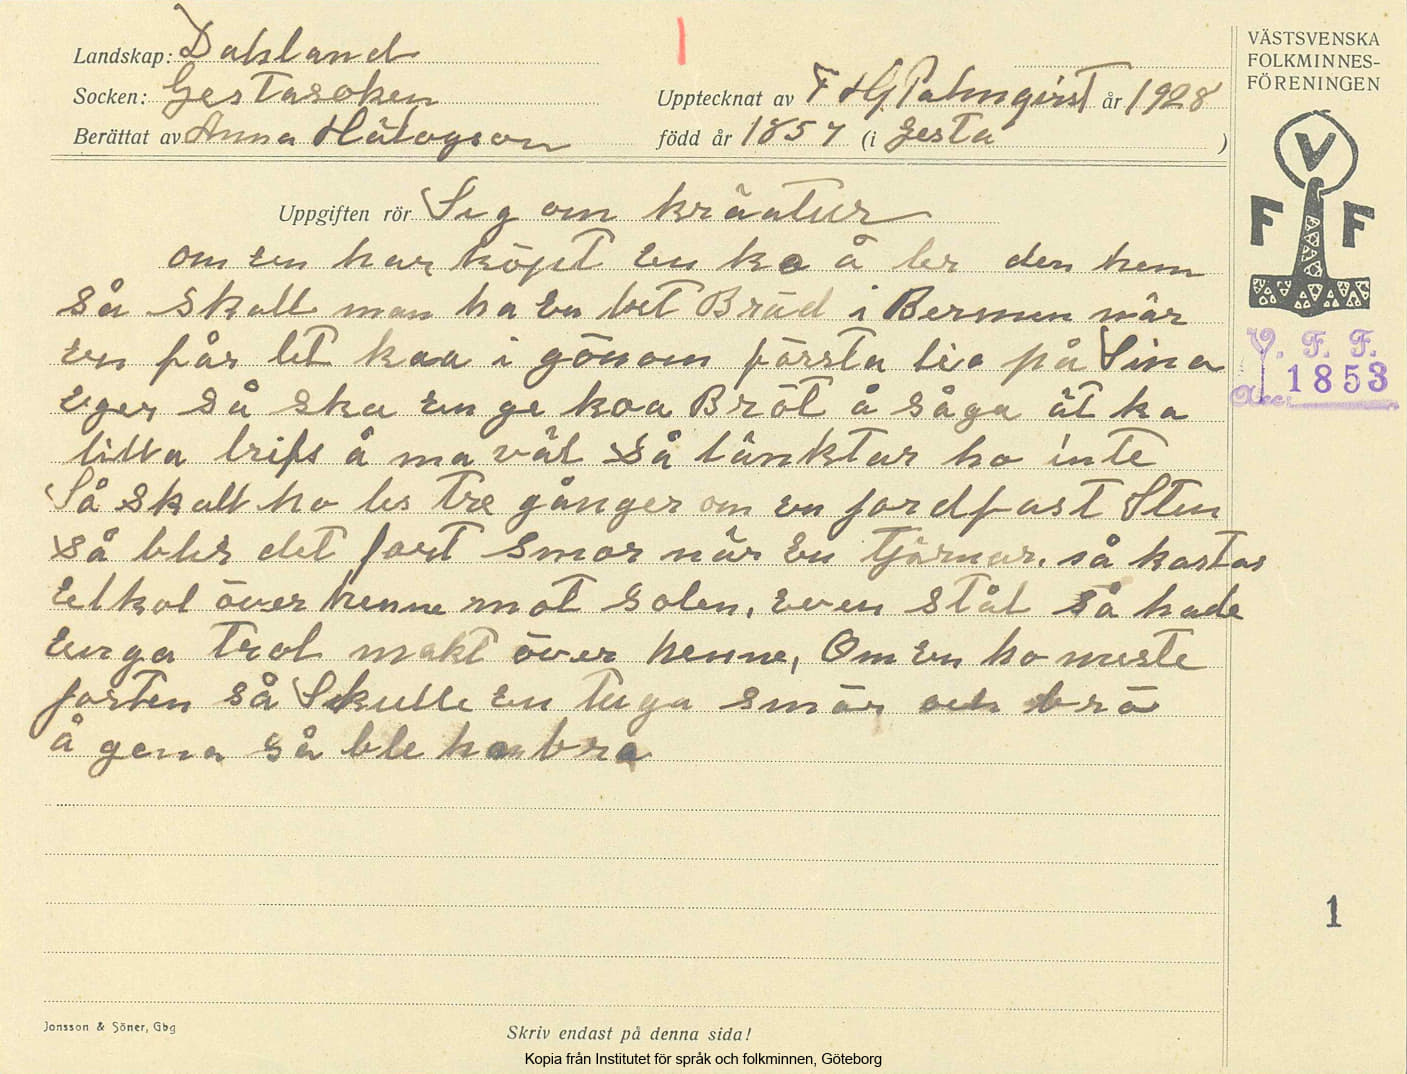 Landskap: Dalsland
Socken: Gestasoken
Berättat av Anna Håkogson
Upptecknat av F Hj Palmqvist år 1928
född år 1857 (i Gesta )
VÄSTSVENSKA
FOLKMINNES-
FÖRENINGEN
V
F F
V. F. F.
1853
Acc.
Uppgiften rör Seg om kräatur
om en har köpt en ko å ler den hem
så skall man ha en bet Bröd i Barmen när
en får let kaa i gönom första lea på Sina
eger så ska en ge koa Bröt å såga åt ka
litta trifs å ma väl så länktar ho inte
Så skall ho les tre gånger om en jordfast Sten
så bler det fort smor när en tjärnar. så kastas
elkol över henne mot solen, even stål så hade
enga trol makt över henne, Om en ho meste
forten så Skulle en tuga smör och brö
å gena så ble hon bra
1
Jonsson & Söner, Gbg
Skriv endast på denna sida!
Kopia från Institutet för språk och folkminnen, Göteborg